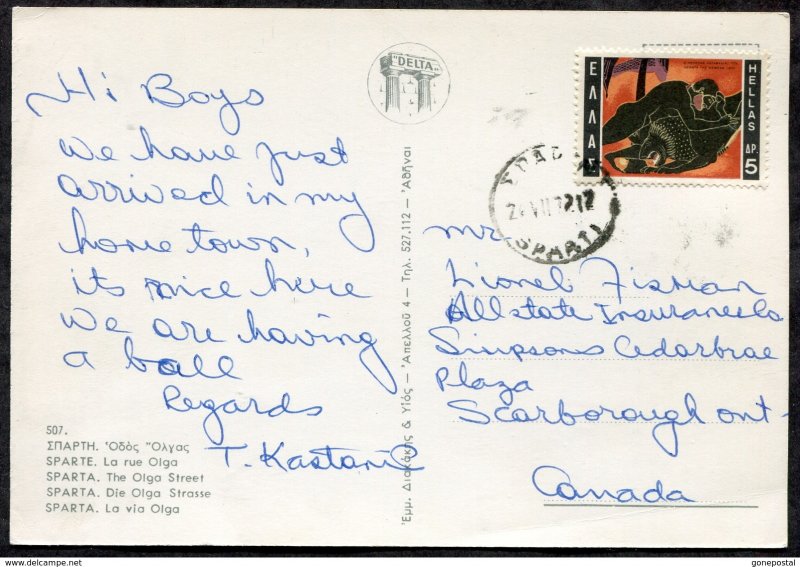 "DELTA"
Hi Boys
we have just
arrived in my
home town,
its nice here
we are having
a ball
Regards
T. Kastanis
507.
ΣΠΑΡΤΗ. Ὁδὸς Ὄλγας
SPARTE. La rue Olga
SPARTA. The Olga Street
SPARTA. Die Olga Strasse
SPARTA. La via Olga
Ἐμμ. Διακάκης & Υἱός – Ἀπελλοῦ 4 – Τηλ. 527.112 – Ἀθῆναι
ΕΛΛΑΣ
HELLAS
ΔΡ. 5
SPARTI
mr.
Lionel Fisman
Allstate Insurance Co
Simpsons Cedarbrae
Plaza
Scarborough ont-
Canada
www.hippostcard.com
gonepostal